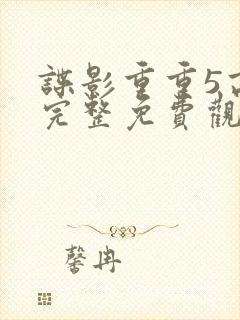 諜影重重5
完整免費觀
馨冉